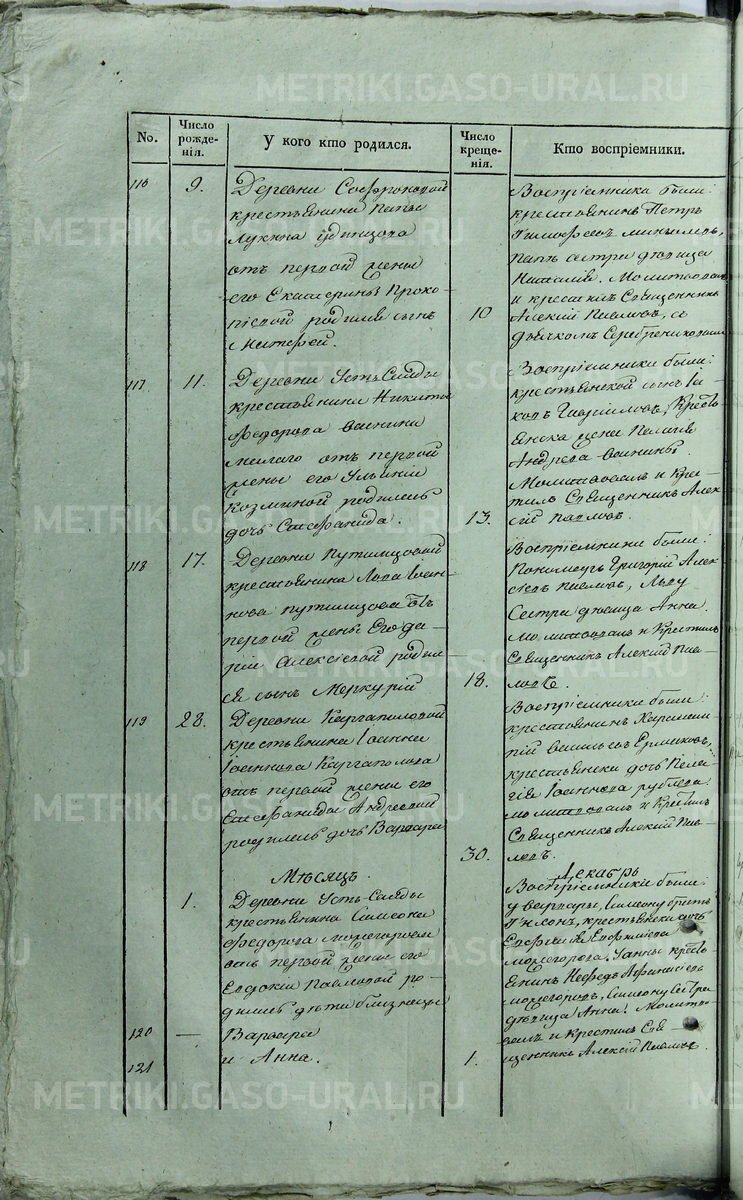 No.
Число рожде-
нія.
У кого кто родился.
Число креще-
нія.
Кто воспріемники.
116
9.
Деревни Софроновой
крестьянина
Лукина
отъ первой жены
его Екатерины Проко-
піевой родился сынъ
Матфей.
10
Воспріемники были:
крестьянинъ Петръ
Тимофеевъ
сестра дѣвица
Наталія. Молитвовалъ
и крестилъ Священникъ
Алексій Павловъ, съ
дьячкомъ Серебренниковымъ
117
11.
Деревни Усть Саиды
крестьянина Никиты
Федорова
отъ первой
жены его Ульяніи
Козминой родилась
дочь Стефанида.
13.
Воспріемники были:
крестьянской сынъ Іа-
ковъ Гавріиловъ, Кресть-
янска жена Пелагія
Андреева
Молитвовалъ и Кре-
стилъ Священникъ Алек-
сій Павловъ.
118
17.
Деревни Путимцовой
крестьянина Іоан-
нова Путимцова отъ
первой жены Его Да-
ріи Алексіевой родил-
ся сынъ Меркурій
18.
Воспріемники были:
Пономарь Григорій Алек-
сіевъ Павловъ,
Сестра дѣвица Анна.
Молитвовалъ и Крестилъ
Священникъ Алексій Пав-
ловъ.
119
28.
Деревни Каргаполовой
крестьянина Іоанна
Іоаннова Каргаполова
отъ первой жены его
Стефаниды Андреевой
родилась дочь Варвара
30.
Воспріемники были:
крестьянинъ
Васильевъ Ермаковъ,
крестьянска дочь Пела-
гія Іоаннова
молитвовалъ и Крестилъ
Священникъ Алексій Пав-
ловъ.
Мѣсяцъ
Декабрь
1.
Деревни Усть-Саиды
крестьянина Симеона
Федорова
отъ первой жены его
Евдокіи Павловой ро-
дились дѣти близнецы
120
—
Варвара
121
и Анна.
1.
Воспріемники были:
у Варвары, Симеону братъ
крестьянска дочь
Евфимія
у Анны кресть-
янинъ Нефедъ
Симеону сестра
дѣвица Анна. Молитво-
валъ и крестилъ Свя-
щенникъ Алексій Павловъ.
METRIKI.GASO-URAL.RU